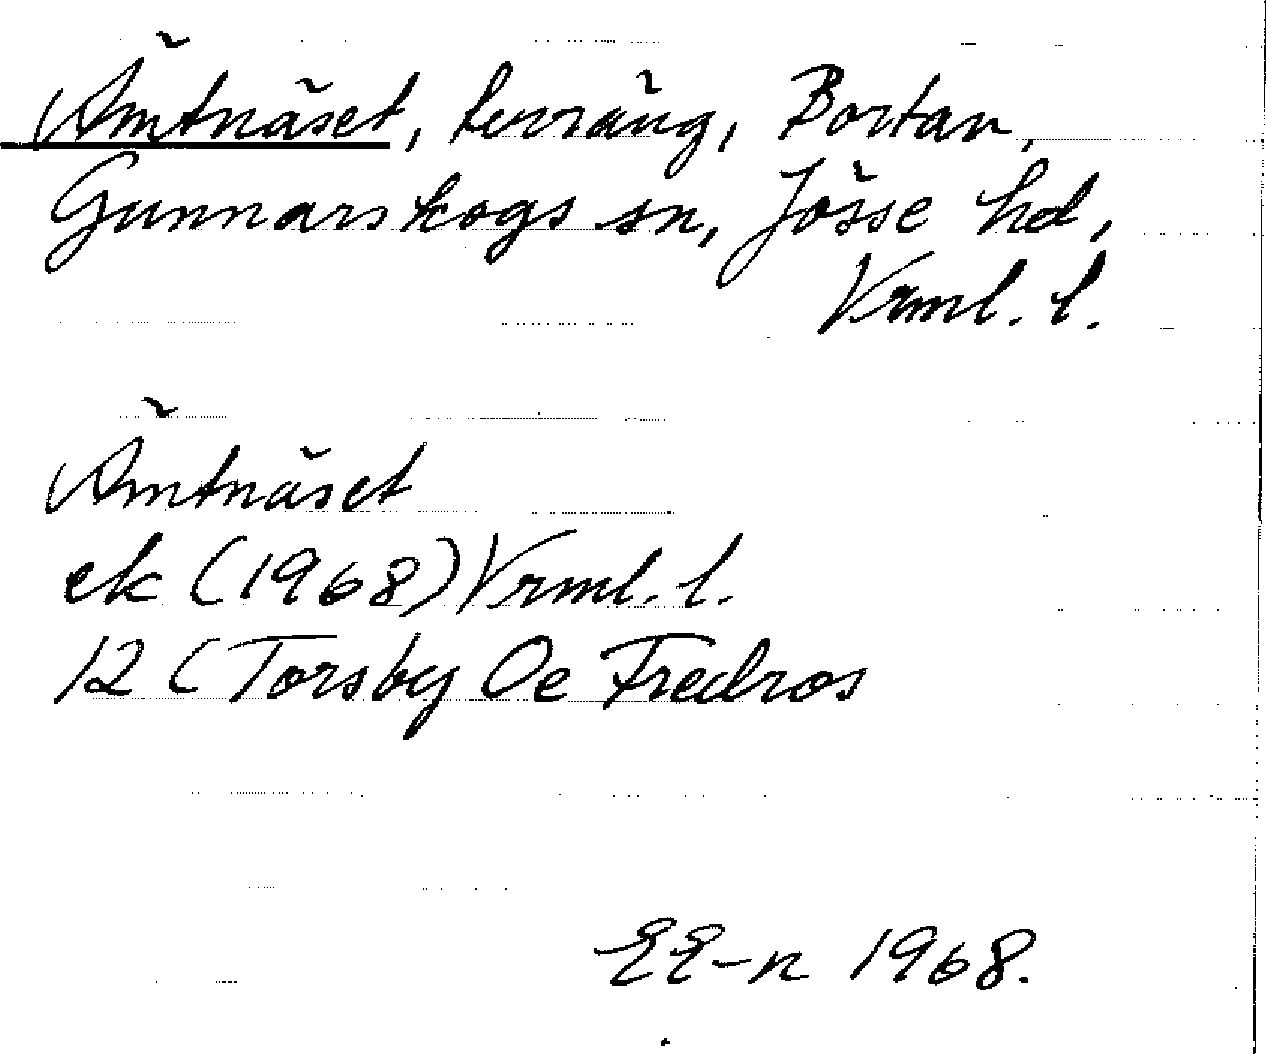 Ämtnäset, terräng, Bortan,
Gunnarskogs sn, Jösse hd,
Vrml. l.
Ämtnäset
ek (1968) Vrml. l.
12 C Torsby Oe Fredros
EE-n 1968.